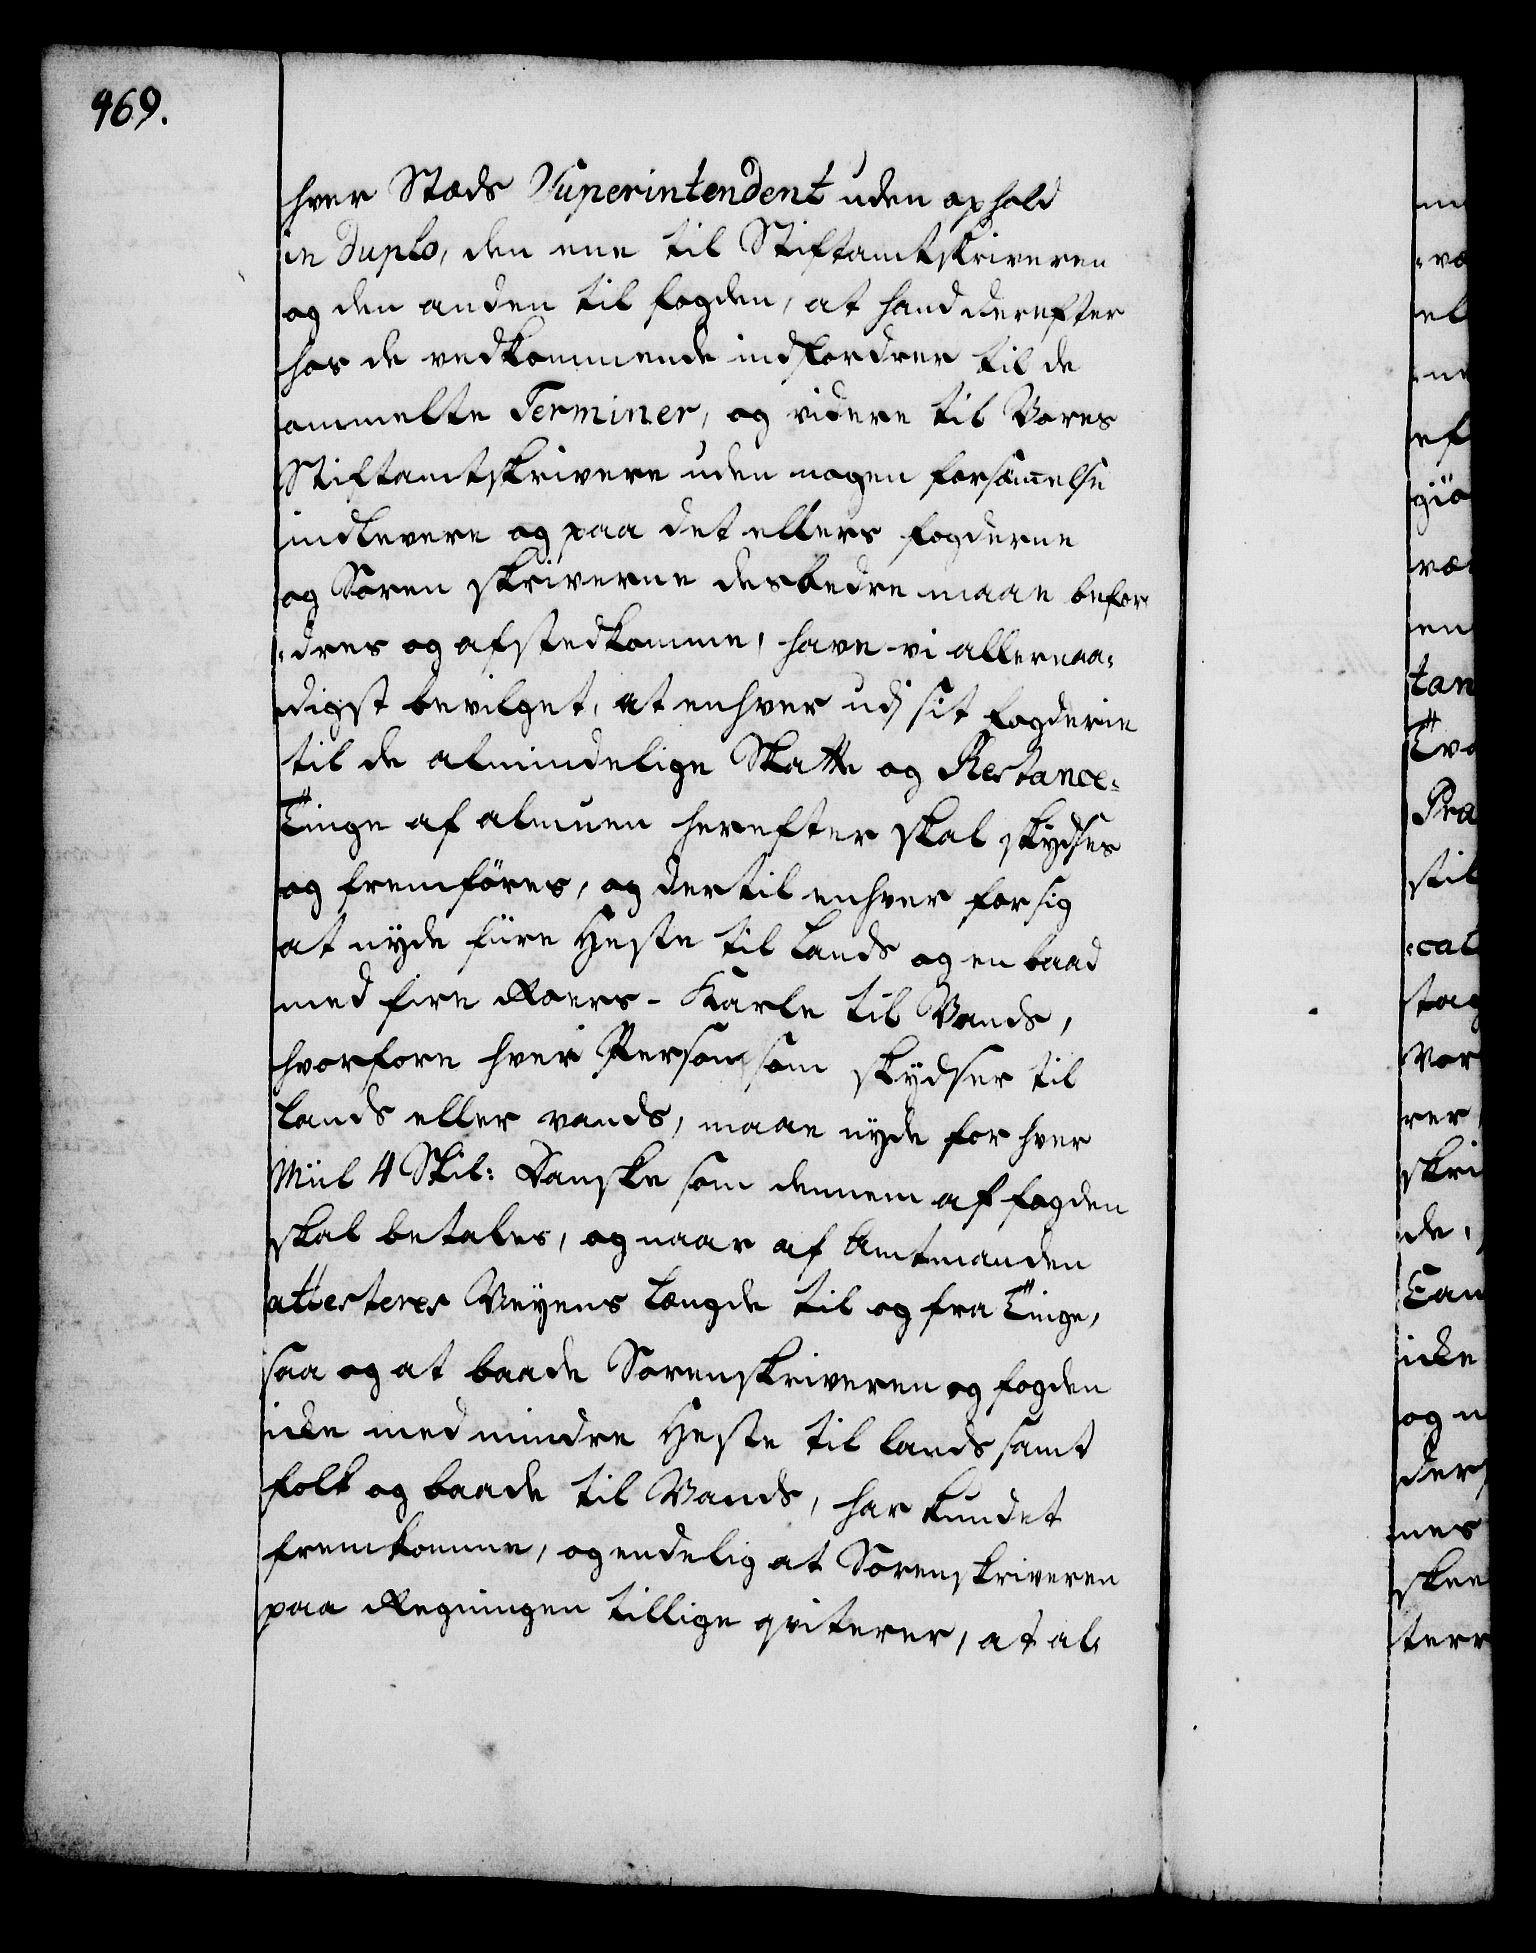 469.
hver Stæds Superintendent uden ophold
in duplo, den ene til Stiftamtskriveren
og den anden til fogden, at hand derefter
hos de vedkommende indfordrer til de
ommelte Terminer, og videre til Vores
Stiftamtskrivere uden nogen forsømmelse
indlevere og paa det ellers fogderne
og Soren skriverne desbedre maae befor
:dres og afstedkomme, have vi allernaa:
digst bevilget, at enhver udj sit fogderie
til de almindelige Skatte og Restance:
Tinge af almuen herefter skal skydses
og fremføres, og dertil enhver for sig
at nyde fiire Heste til Lands og en baad
med fire Roers-Karle til Vands,
hvorfore hver Person som skydser til
Lands eller vands, maae nyde for hver
Miil 4 Skil: Danske som dennem af fogden
skal betales, og naar af Amtmanden
attesteres Veyens Længde til og fra Tinge,
saa og at baade Sorenskriveren og fogden
icke med mindre Heste til lands samt
folk og baade til Vands, har kundet
fremkomme, og endelig at Sorenskriveren
paa Regningen tillige qviterer, at al: